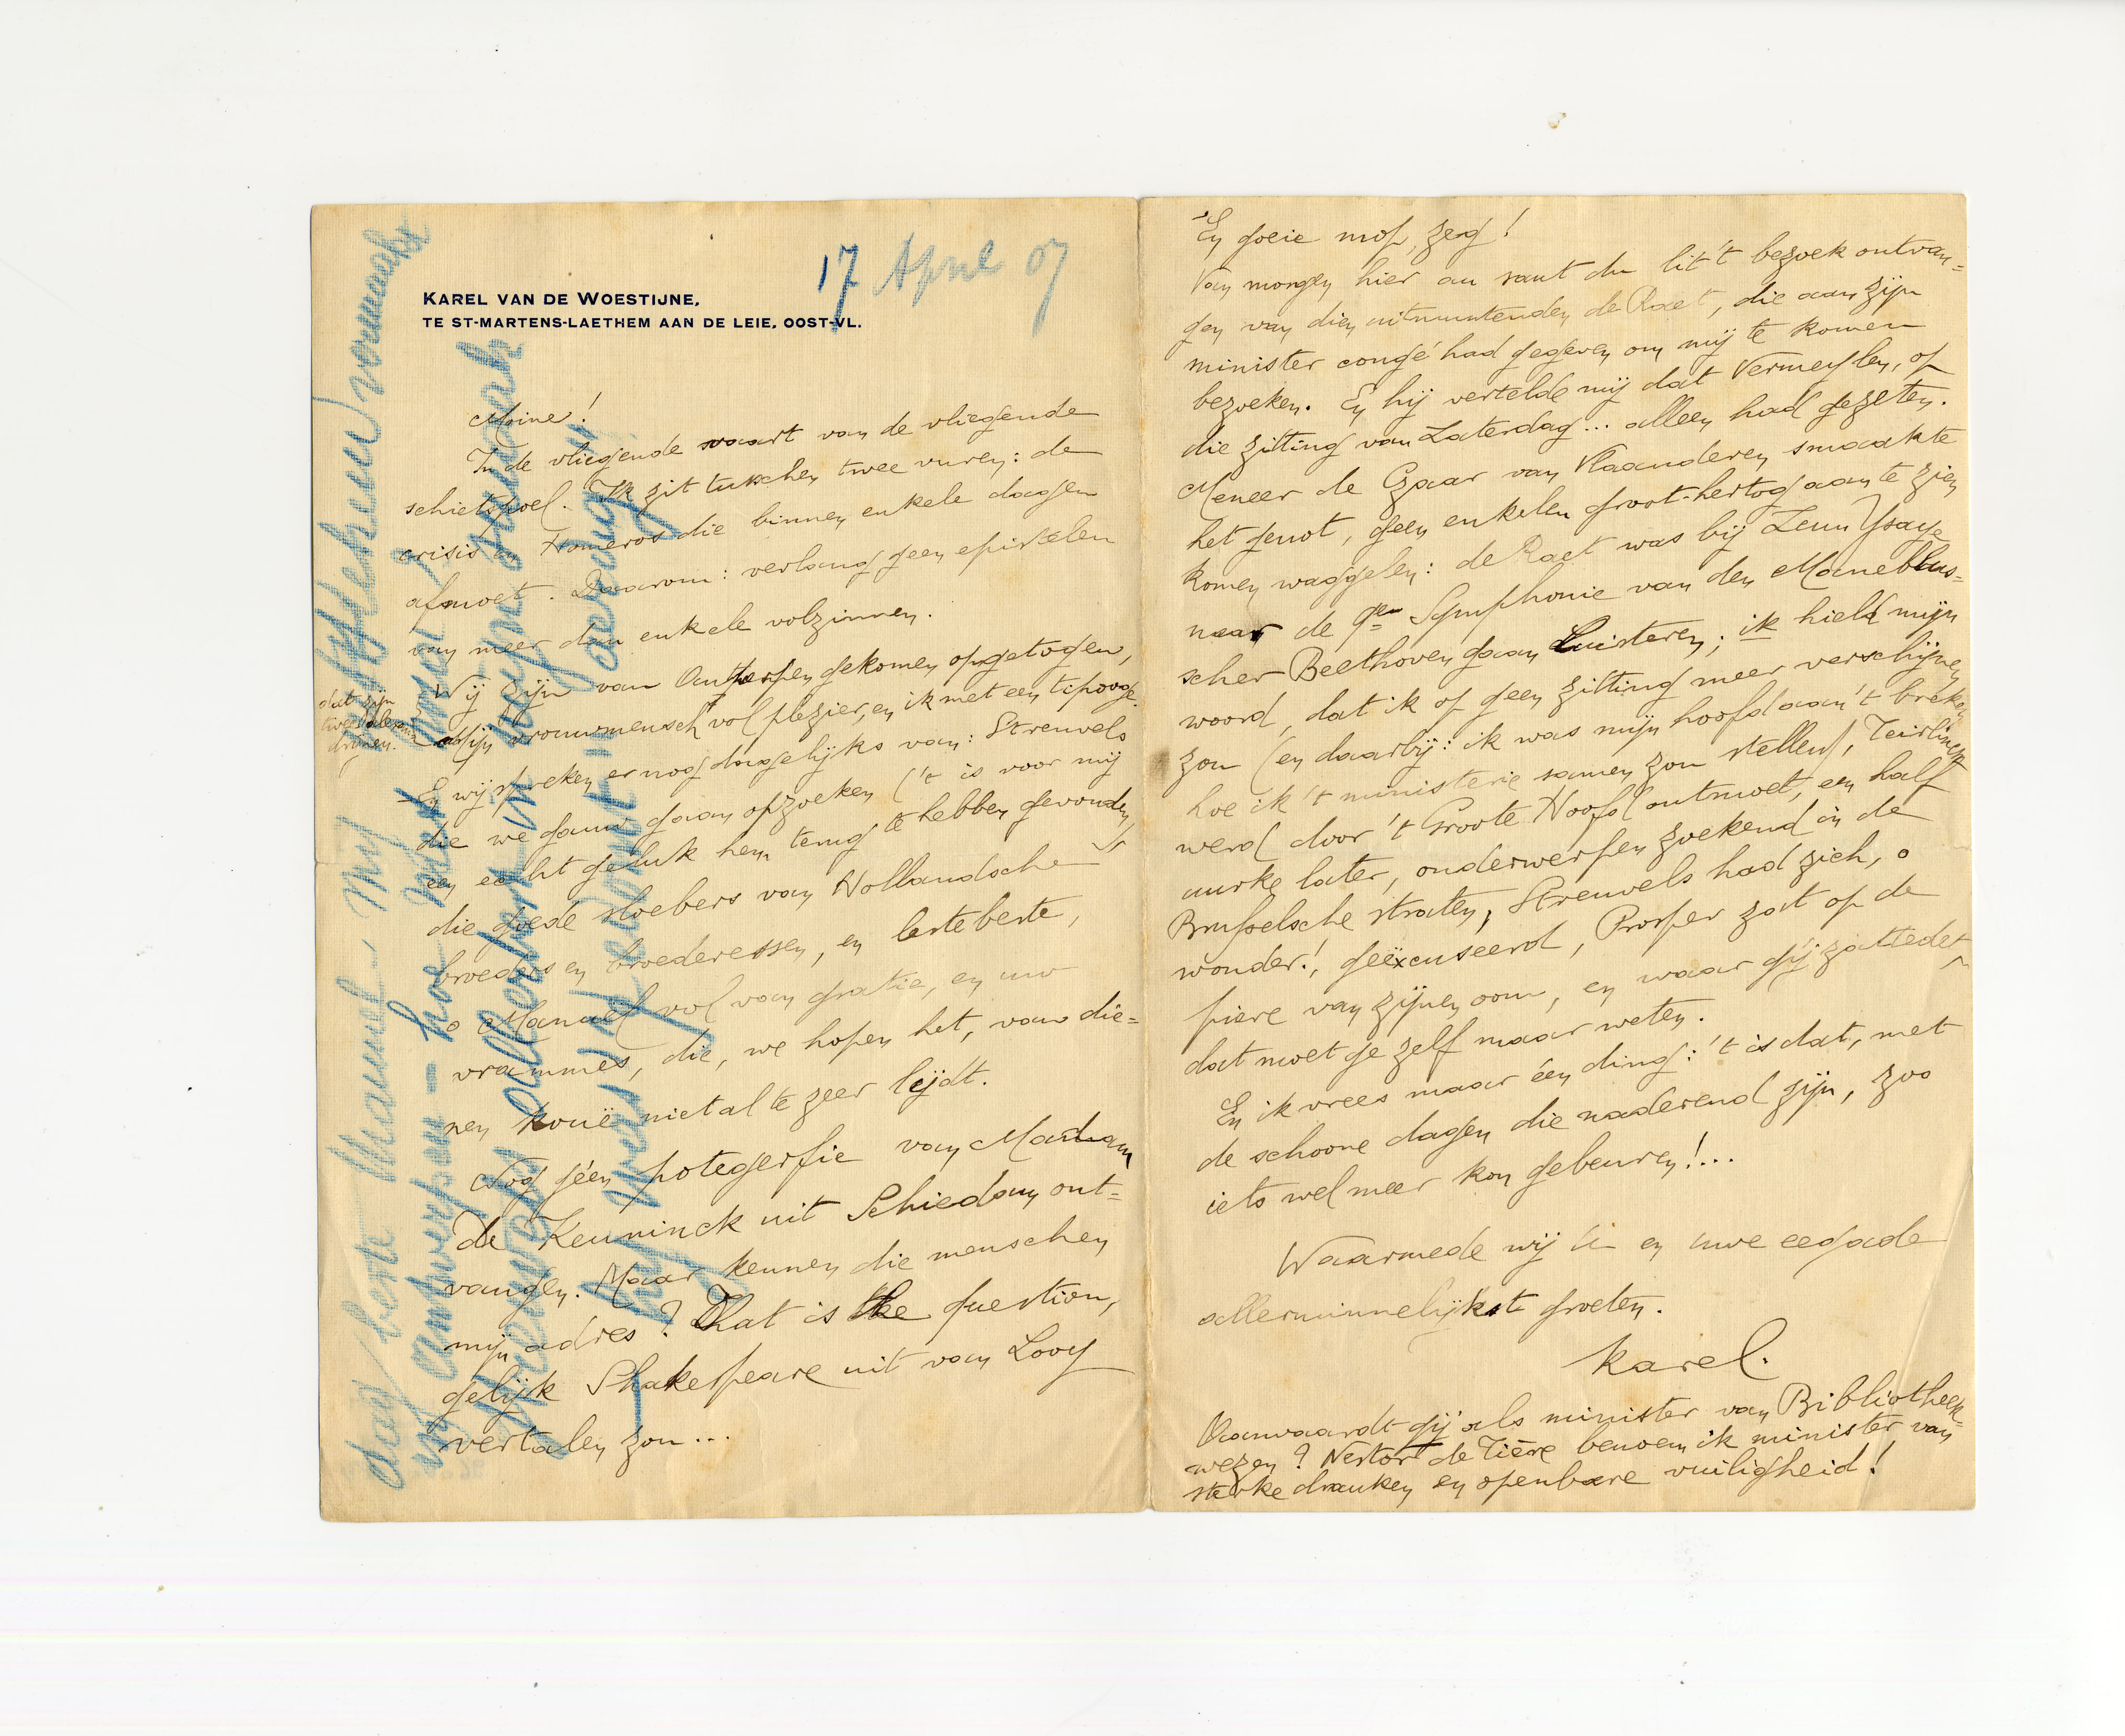 17 April 07
KAREL VAN DE WOESTIJNE,
TE ST-MARTENS-LAETHEM AAN DE LEIE, OOST-VL.
Moine!
In de vliegende vaart van de vliegende
schietspoel. Ik zit tusschen twee vuren: de
crisis en Homeros die binnen enkele dagen
af moet. Daarom: verlang geen epistelen
van meer dan enkele volzinnen.
Wij zijn van Antwerpen gekomen opgetogen,
Mijn vrouwmensch vol plezier, en ik met een tipooge.
dat zijn
druiven.
En wij spreken er nog dagelijks van: Streuvels
die we gauw gaan opzoeken ('t is voor mij
een echt geluk hem terug te hebben gevonden),
die goede sloebers van Hollandsche
broeders en broederessen, en lestebeste,
o Manuel vol van gratie, en uw
vrammes, die, we hopen het, van die=
nen kouë niet al te zeer lijdt.
Nog géén potegerfie van Madam
de Keuninck uit Schiedam ont=
vangen. Maar kennen die menschen
mijn adres? That is the question,
gelijk Shakespeare uit van Looy
vertalen zou...
'En goeie mop, zeg!
Van morgen hier au saut du lit 't bezoek ontvan=
gen van dien uitmuntenden de Raet, die aan zijn
minister congé had gegeven om mij te komen
bezoeken. En hij vertelde mij dat Vermeylen, op
die zitting van Zaterdag... alleen had gezeten.
Meneer de Czaar van Vlaanderen smaakte
het genot, geen enkelen groot-hertog aan te zien
komen waggelen: de Raet was bij Zeun Ysaye
naar de 9en Symphonie van den Maneblus=
scher Beethoven gaan luisteren; ik hield mijn
woord, dat ik op geen zitting meer verschijnen
zou (en daarbij: ik was mijn hoofd aan 't breken
hoe ik 't ministerie samen zou stellen), Teirlinck
werd door 't Groote Hoofd ontmoet, een half
uurke later, onderwerpen zoekend in de
Brusselsche straten, Streuvels had zich, o
wonder!, geëxcuseerd, Prosper zat op de
piere van zijnen oom, en waar gij zattedet,
dat moet ge zelf maar weten.
En ik vrees maar één ding: 't is dat, met
de schoone dagen die naderend zijn, zoo
iets wel meer kon gebeuren!...
Waarmede wij U en uwe eegade
allerminnelijkst groeten.
Karel.
Aanvaardt gij als minister van Bibliotheek=
wezen? Nestor de Tière benoem ik minister van
sterke dranken en openbare vuiligheid!